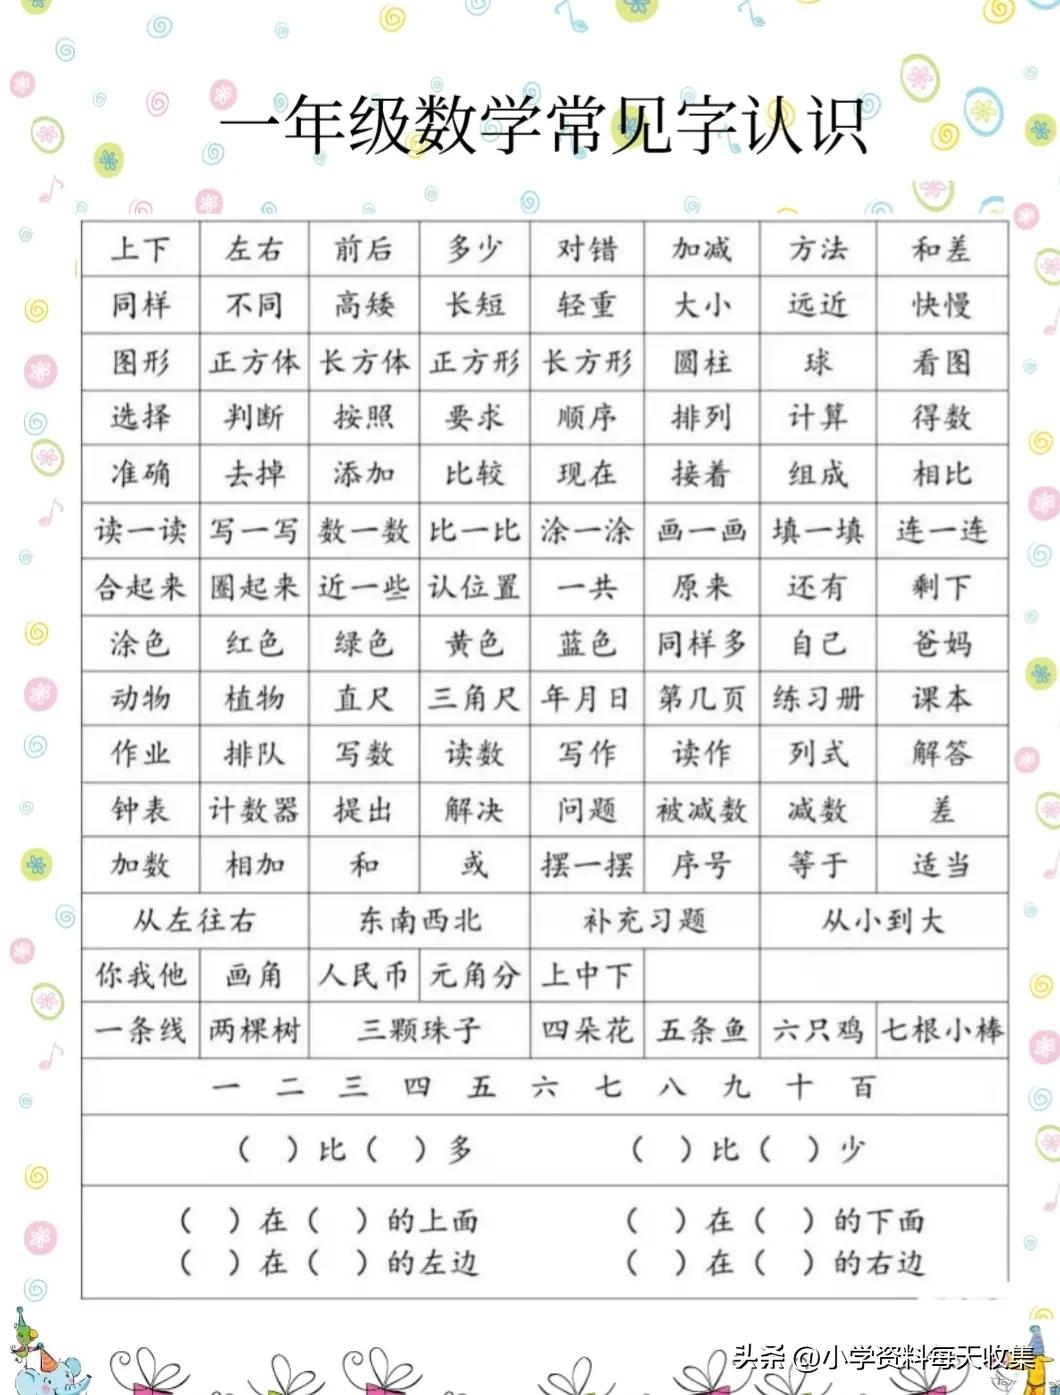 一年级数学常见字认识
上下 左右 前后 多少 对错 加减 方法 和差
同样 不同 高矮 长短 轻重 大小 远近 快慢
图形 正方体 长方体 正方形 长方形 圆柱 球 看图
选择 判断 按照 要求 顺序 排列 计算 得数
准确 去掉 添加 比较 现在 接着 组成 相比
读一读 写一写 数一数 比一比 涂一涂 画一画 填一填 连一连
合起来 圈起来 近一些 认位置 一共 原来 还有 剩下
涂色 红色 绿色 黄色 蓝色 同样多 自己 爸妈
动物 植物 直尺 三角尺 年月日 第几页 练习册 课本
作业 排队 写数 读数 写作 读作 列式 解答
钟表 计数器 提出 解决 问题 被减数 减数 差
加数 相加 和 或 摆一摆 序号 等于 适当
从左往右 东南西北 补充习题 从小到大
你我他 画角 人民币 元角分 上中下
一条线 两棵树 三颗珠子 四朵花 五条鱼 六只鸡 七根小棒
一 二 三 四 五 六 七 八 九 十 百
（ ）比（ ）多 （ ）比（ ）少
（ ）在（ ）的上面 （ ）在（ ）的下面
（ ）在（ ）的左边 （ ）在（ ）的右边
头条 @小学资料每天收集